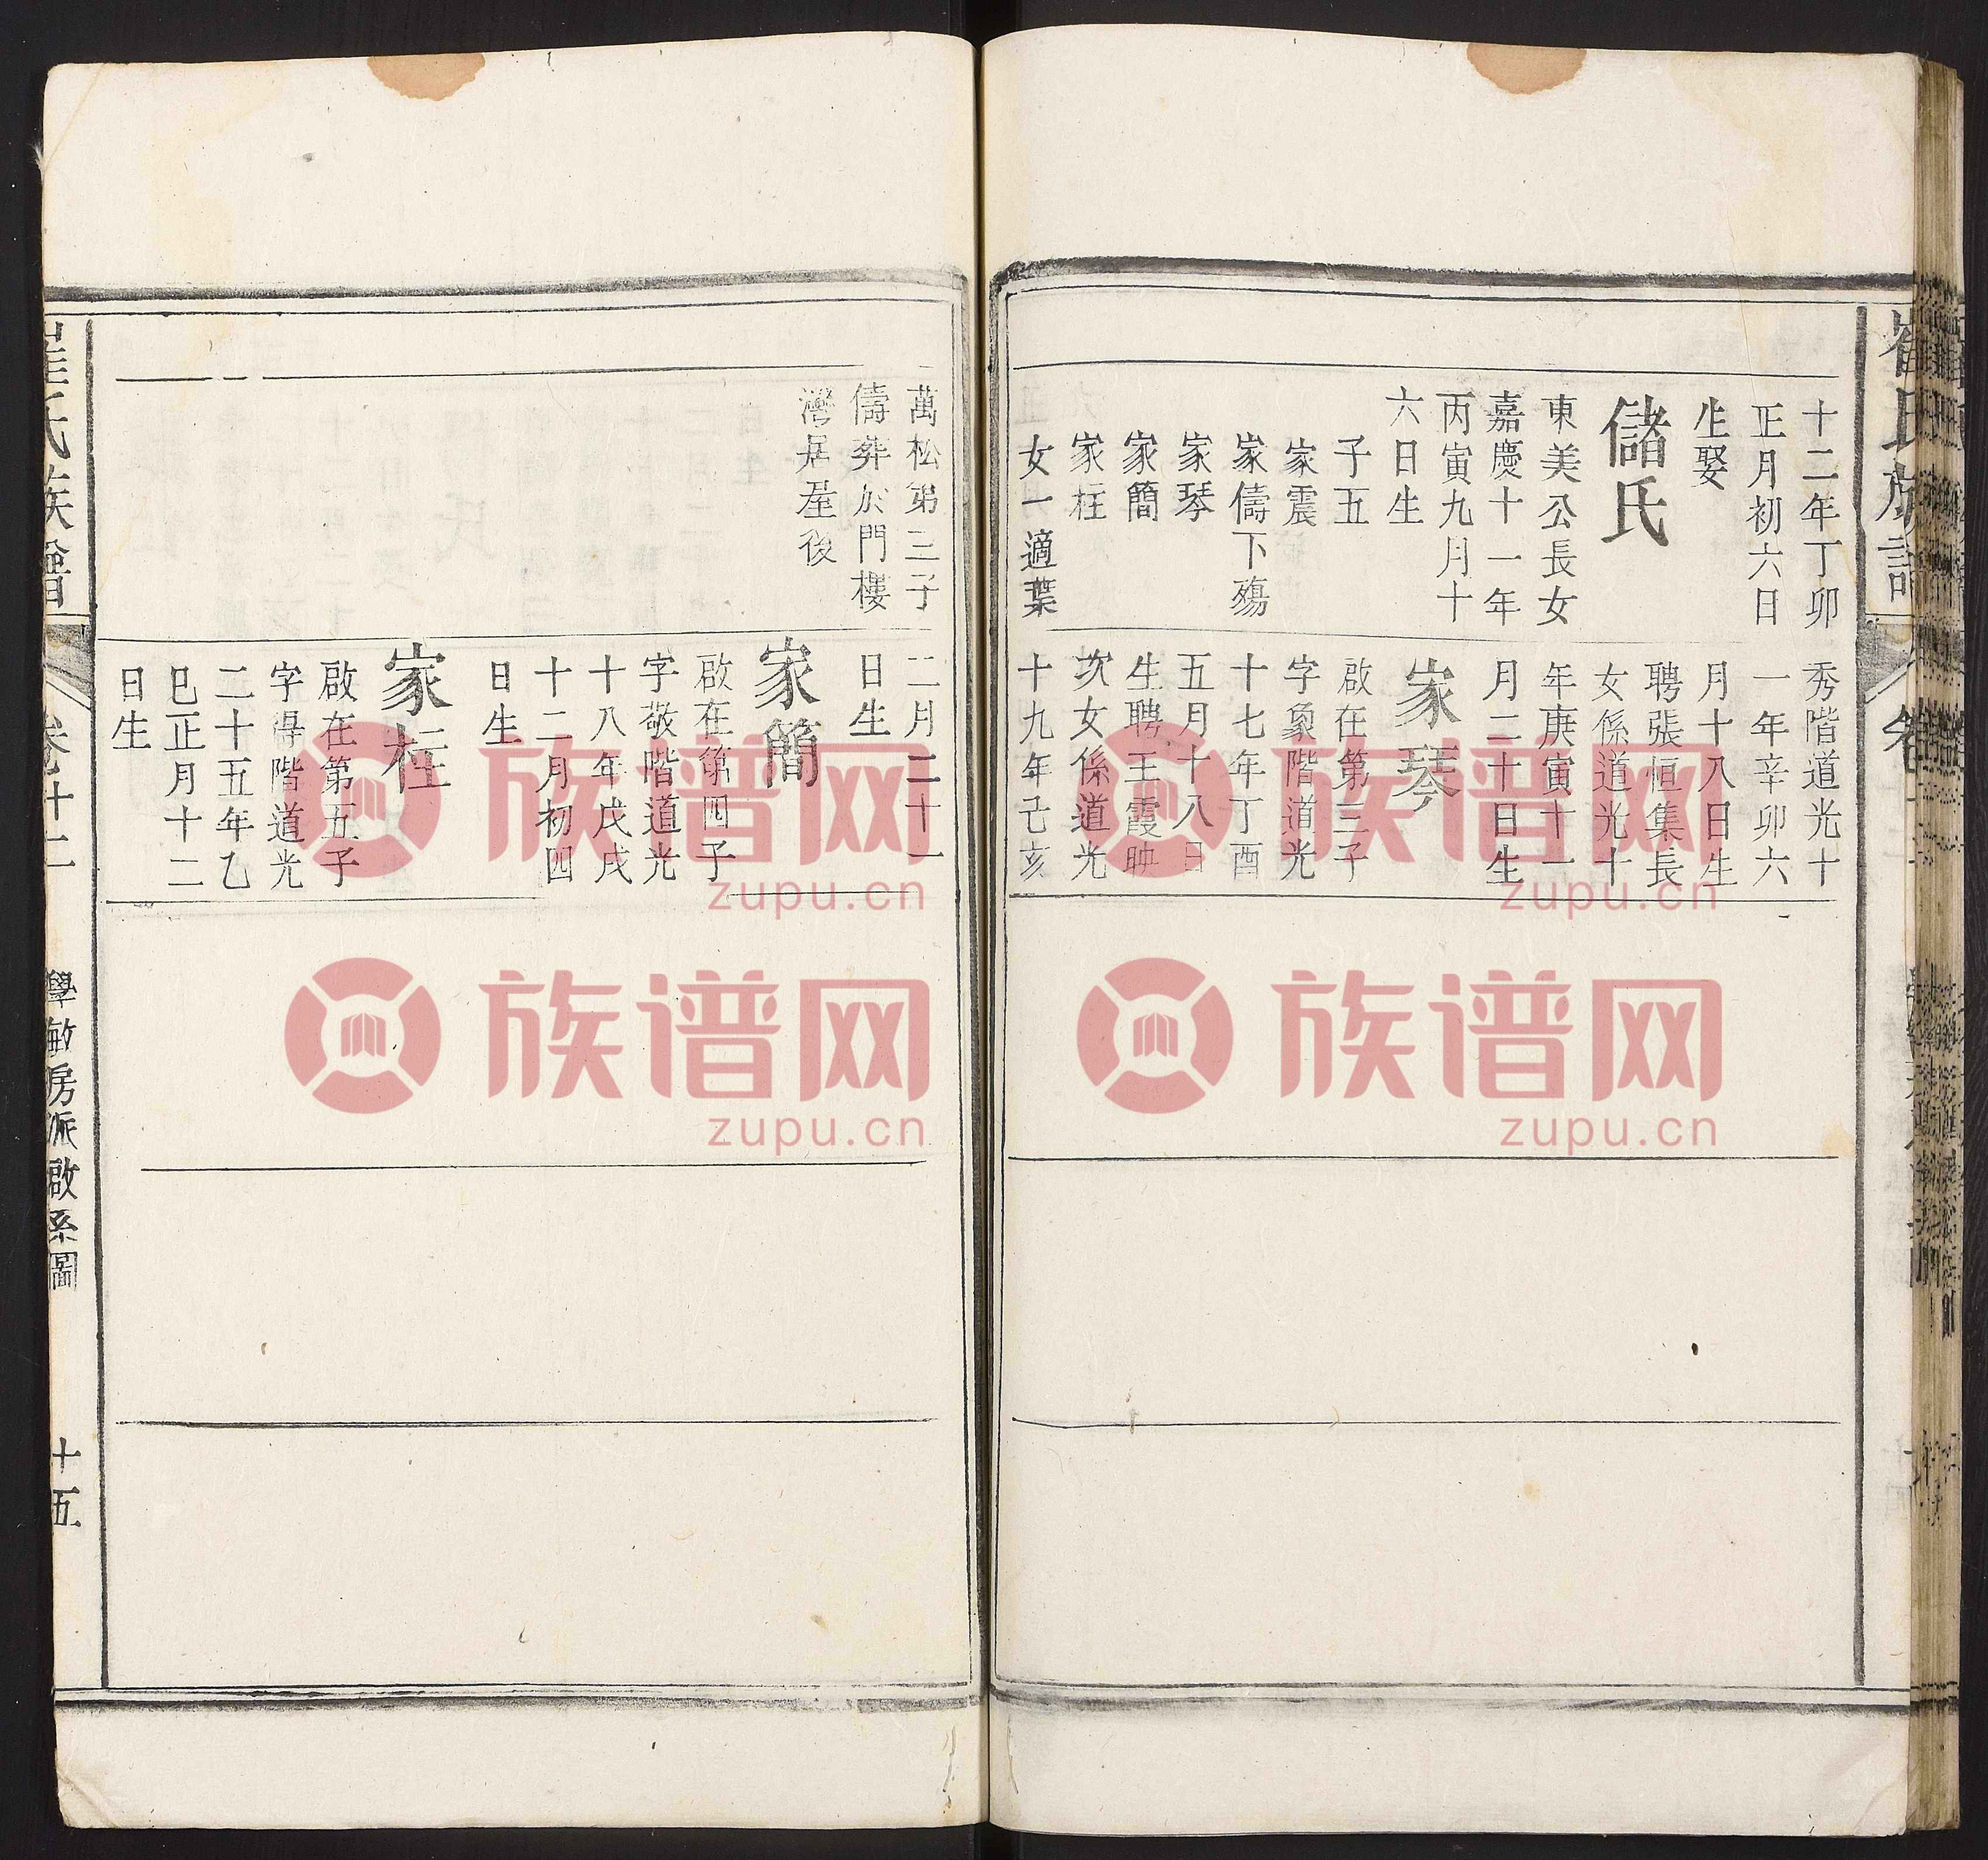 崔氏族譜
十二年丁卯
正月初六日
生娶
儲氏
東美公長女
嘉慶十一年
丙寅九月十
六日生
子五
家震
家儔下殤
家琴
家簡
家柱
女一適葉
秀階道光十
一年辛卯六
月十八日生
聘張恒集長
女係道光十
年庚寅十一
月二十日生
家琴
啟在第三子
字象階道光
十七年丁酉
五月十八日
生聘王霞映
次女係道光
十九年己亥
萬松第三子
儔葬於門樓
灣居屋後
二月二十一
日生
家簡
啟在第四子
字敬階道光
十八年戊戌
十二月初四
日生
家柱
啟在第五子
字得階道光
二十五年乙
巳正月十二
日生
崔氏族譜
卷十二
學敏房派啟系圖
十五
族谱网
zupu.cn
族谱网
zupu.cn
族谱网
zupu.cn
族谱网
zupu.cn